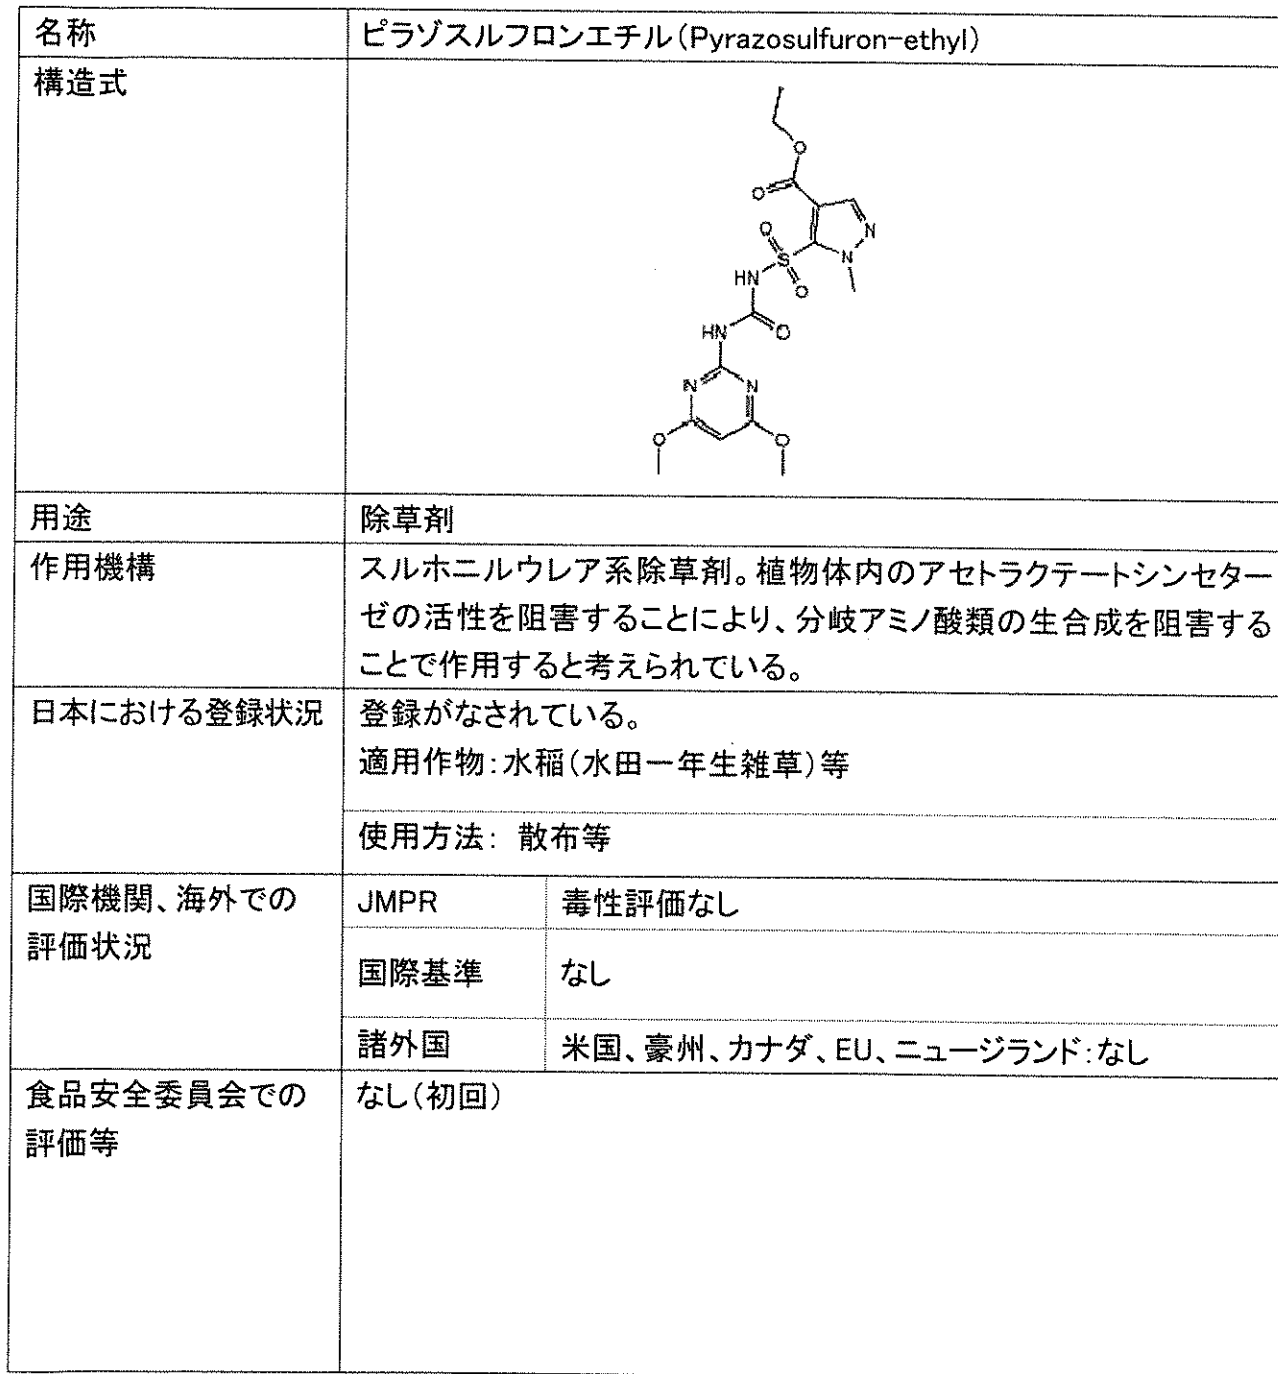 名称
ピラゾスルフロンエチル(Pyrazosulfuron-ethyl)
構造式
O
O
N
O
N
S
HN
O
HN
O
N
N
O
O
用途
除草剤
作用機構
スルホニルウレア系除草剤。植物体内のアセトラクテートシンセター
ゼの活性を阻害することにより、分岐アミノ酸類の生合成を阻害する
ことで作用すると考えられている。
日本における登録状況
登録がなされている。
適用作物:水稲(水田一年生雑草)等
使用方法: 散布等
国際機関、海外での
評価状況
JMPR
毒性評価なし
国際基準
なし
諸外国
米国、豪州、カナダ、EU、ニュージランド:なし
食品安全委員会での
評価等
なし(初回)